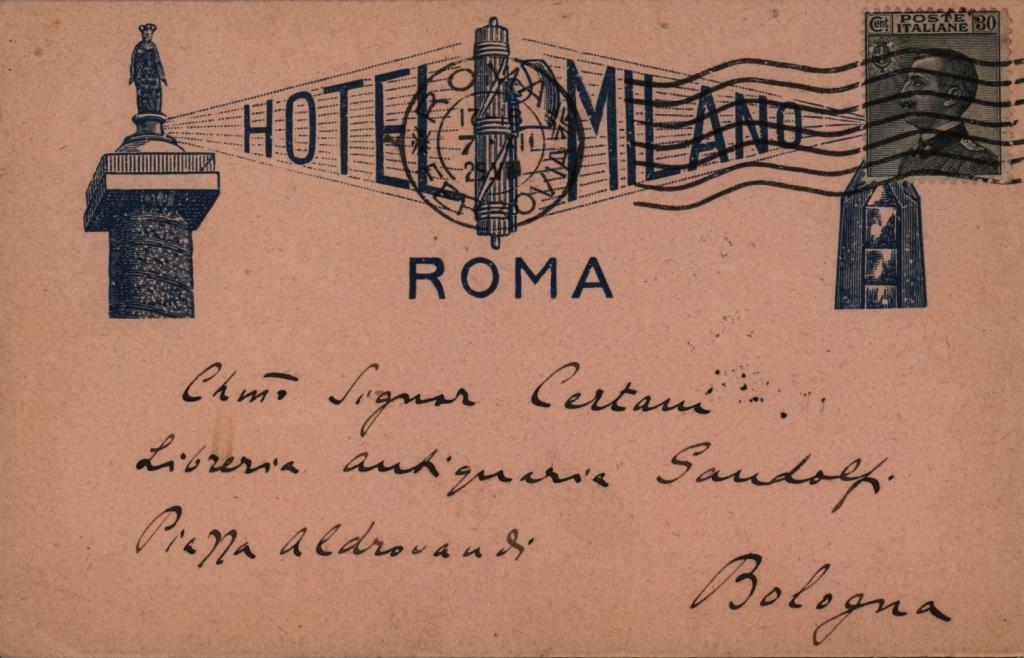 Cent POSTE ITALIANE 30
HOTEL MILANO
ROMA FERROVIA
17-18
7
ROMA
Chmo Signor Certani
Libreria antiquaria Gandolfi
Piazza Aldrovandi
Bologna